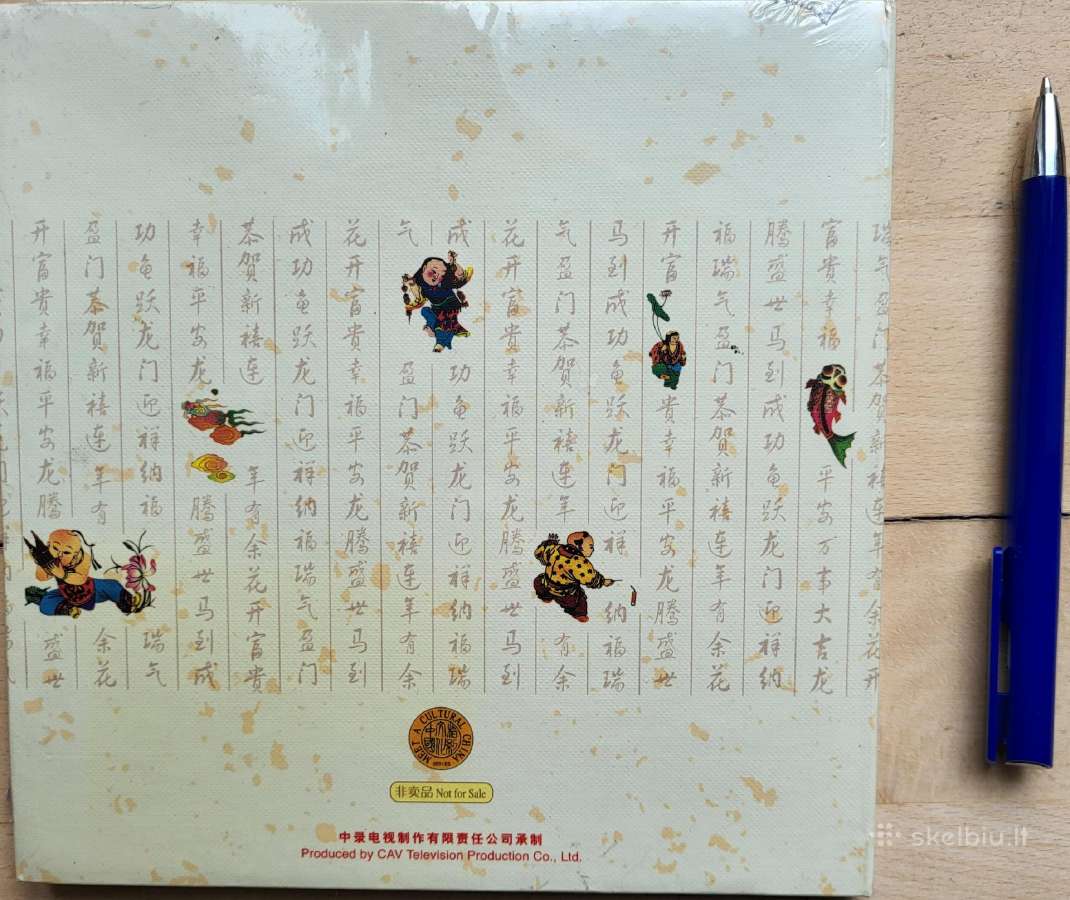 瑞气盈门恭贺新禧连年有余花开
富贵幸福平安万事大吉龙
腾盛世马到成功鱼跃龙门迎祥纳
福瑞气盈门恭贺新禧连年有余花
开富贵幸福平安龙腾盛世
马到成功鱼跃龙门迎祥纳福瑞
气盈门恭贺新禧连年有余
花开富贵幸福平安龙腾盛世马到
成功鱼跃龙门迎祥纳福瑞
气盈门恭贺新禧连年有余
花开富贵幸福平安龙腾盛世马到
成功鱼跃龙门迎祥纳福瑞气盈门
恭贺新禧连年有余花开富贵
幸福平安龙腾盛世马到成
功鱼跃龙门迎祥纳福瑞气
盈门恭贺新禧连年有余花
开富贵幸福平安龙腾盛世
MEET A CULTURAL CHINA
非卖品 Not for Sale
中录电视制作有限责任公司承制
Produced by CAV Television Production Co., Ltd.
skelbiu.lt